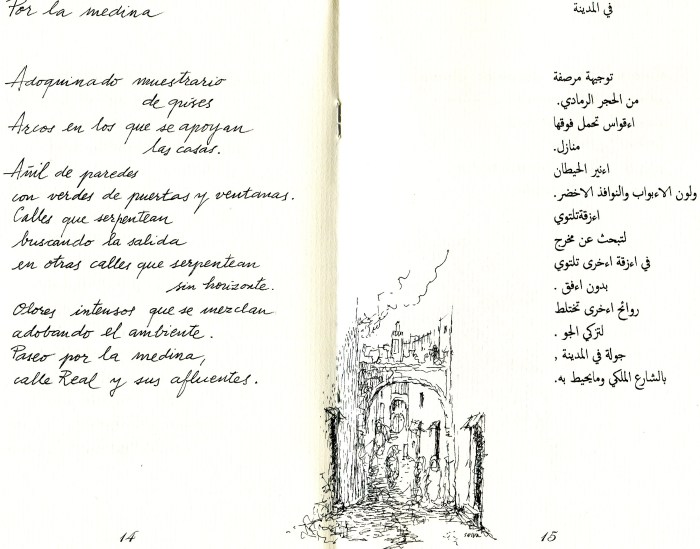 Por la medina
Adoquinado muestrario
de grises
Arcos en los que se apoyan
las casas.
Añil de paredes
con verdes de puertas y ventanas.
Calles que serpentean
buscando la salida
en otras calles que serpentean
sin horizonte.
Olores intensos que se mezclan
adobando el ambiente.
Paseo por la medina,
calle Real y sus afluentes.
14
في المدينة
توجيهة مرصفة
من الحجر الرمادي.
اءقواس تحمل فوقها
منازل.
اءنير الحيطان
ولون الاءبواب والنوافذ الاخضر.
اءزقةتلتوي
لتبحث عن مخرج
في اءزقة اءخرى تلتوي
بدون اءفق .
روائح اءخرى تختلط
لتزكي الجو .
جولة في المدينة ,
بالشارع الملكي ومايحيط به.
15